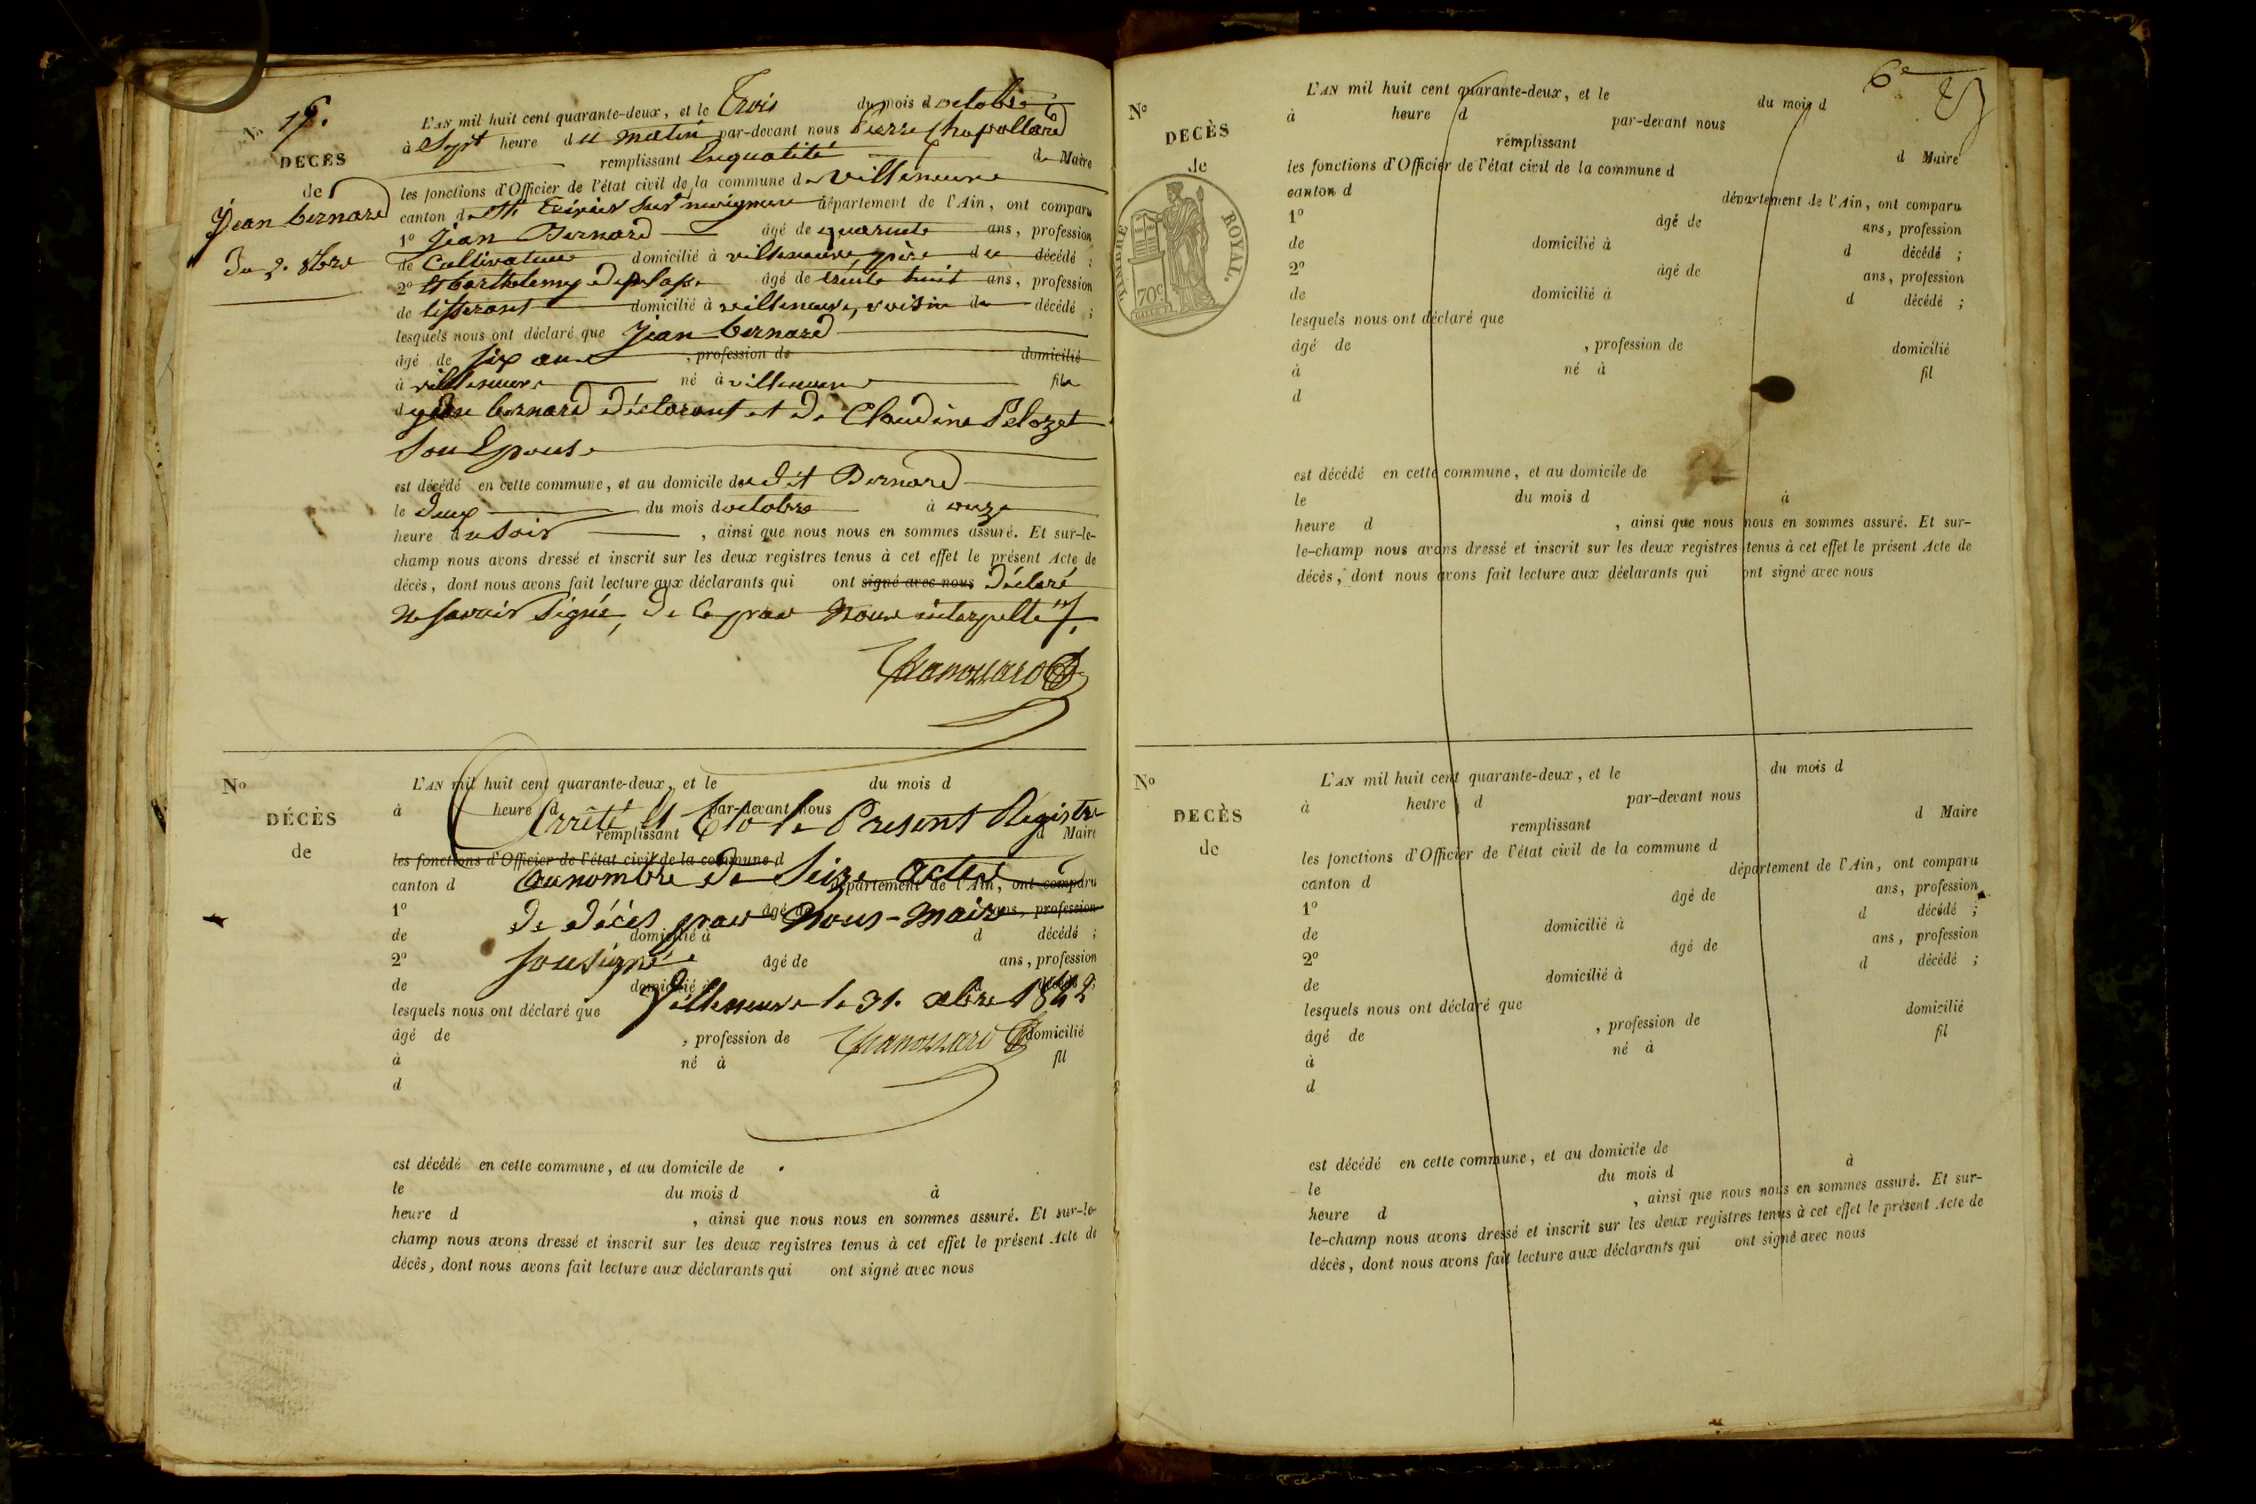 No 16.
DÉCÈS
de
Jean bernard
du 2. 8bre
L'AN mil huit cent quarante-deux, et le Trois du mois d octobre
à Sept heure du matin par-devant nous Pierre Chapollard
remplissant Enqualité de Maire
les fonctions d'Officier de l'état civil de la commune de villeneuve
canton de St. Trivier Sur département de l'Ain, ont comparu
1º Jean Bernard âgé de quarente ans, profession
de Cultivateur domicilié à villeneuve, père du décédé ;
2º Et barthelemy âgé de trente huit ans, profession
de tisserant domicilié à villeneuve, voisin du décédé ;
lesquels nous ont déclaré que Jean bernard
âgé de six ans , profession de domicilié
à villeneuve né à villeneuve fils
de jean bernard déclarant et de Claudine Pelozet
Son Epouse
est décédé en cette commune, et au domicile du dit Bernard
le deux du mois d octobre à onze
heure du soir , ainsi que nous nous en sommes assuré. Et sur-le-
champ nous avons dressé et inscrit sur les deux registres tenus à cet effet le présent Acte de
décès, dont nous avons fait lecture aux déclarants qui ont signé avec nous déclaré
ne savoir signé, de ce par Nous interpellé
Chapollard
No
DÉCÈS
de
L'AN mil huit cent quarante-deux, et le du mois d
à heure d par-devant nous
Arrêté Et Clo le Present Régistre
remplissant d Maire
les fonctions d'Officier de l'état civil de la commune d
canton d département de l'Ain, ont comparu
au nombre de Seize actes
1º âgé de ans, profession
de décès par Nous-Maire
de domicilié à d décédé ;
2º âgé de ans, profession
sousigné
de domicilié à décédé ;
Villeneuve le 31. xbre 1842
lesquels nous ont déclaré que
âgé de , profession de domicilié
Chapollard
à né à fil
d
est décédé en cette commune, et au domicile de
le du mois d à
heure d , ainsi que nous nous en sommes assuré. Et sur-le-
champ nous avons dressé et inscrit sur les deux registres tenus à cet effet le présent Acte de
décès, dont nous avons fait lecture aux déclarants qui ont signé avec nous
6e
No
DECÈS
de
TIMBRE ROYAL.
70c
L'AN mil huit cent quarante-deux, et le du mois d
à heure d par-devant nous
remplissant d Maire
les fonctions d'Officier de l'état civil de la commune d
canton d département de l'Ain, ont comparu
1º âgé de ans, profession
de domicilié à d décédé ;
2º âgé de ans, profession
de domicilié à d décédé ;
lesquels nous ont déclaré que
âgé de , profession de domicilié
à né à fil
d
est décédé en cette commune, et au domicile de
le du mois d à
heure d , ainsi que nous nous en sommes assuré. Et sur-
le-champ nous avons dressé et inscrit sur les deux registres tenus à cet effet le présent Acte de
décès, dont nous avons fait lecture aux déclarants qui ont signé avec nous
No
DECÈS
de
L'AN mil huit cent quarante-deux, et le du mois d
à heure d par-devant nous
remplissant d Maire
les fonctions d'Officier de l'état civil de la commune d
canton d département de l'Ain, ont comparu
1º âgé de ans, profession
de domicilié à d décédé ;
2º âgé de ans, profession
de domicilié à d décédé ;
lesquels nous ont déclaré que
âgé de , profession de domicilié
à né à fil
d
est décédé en cette commune, et au domicile de
le du mois d à
heure d , ainsi que nous nous en sommes assuré. Et sur-
le-champ nous avons dressé et inscrit sur les deux registres tenus à cet effet le présent Acte de
décès, dont nous avons fait lecture aux déclarants qui ont signé avec nous